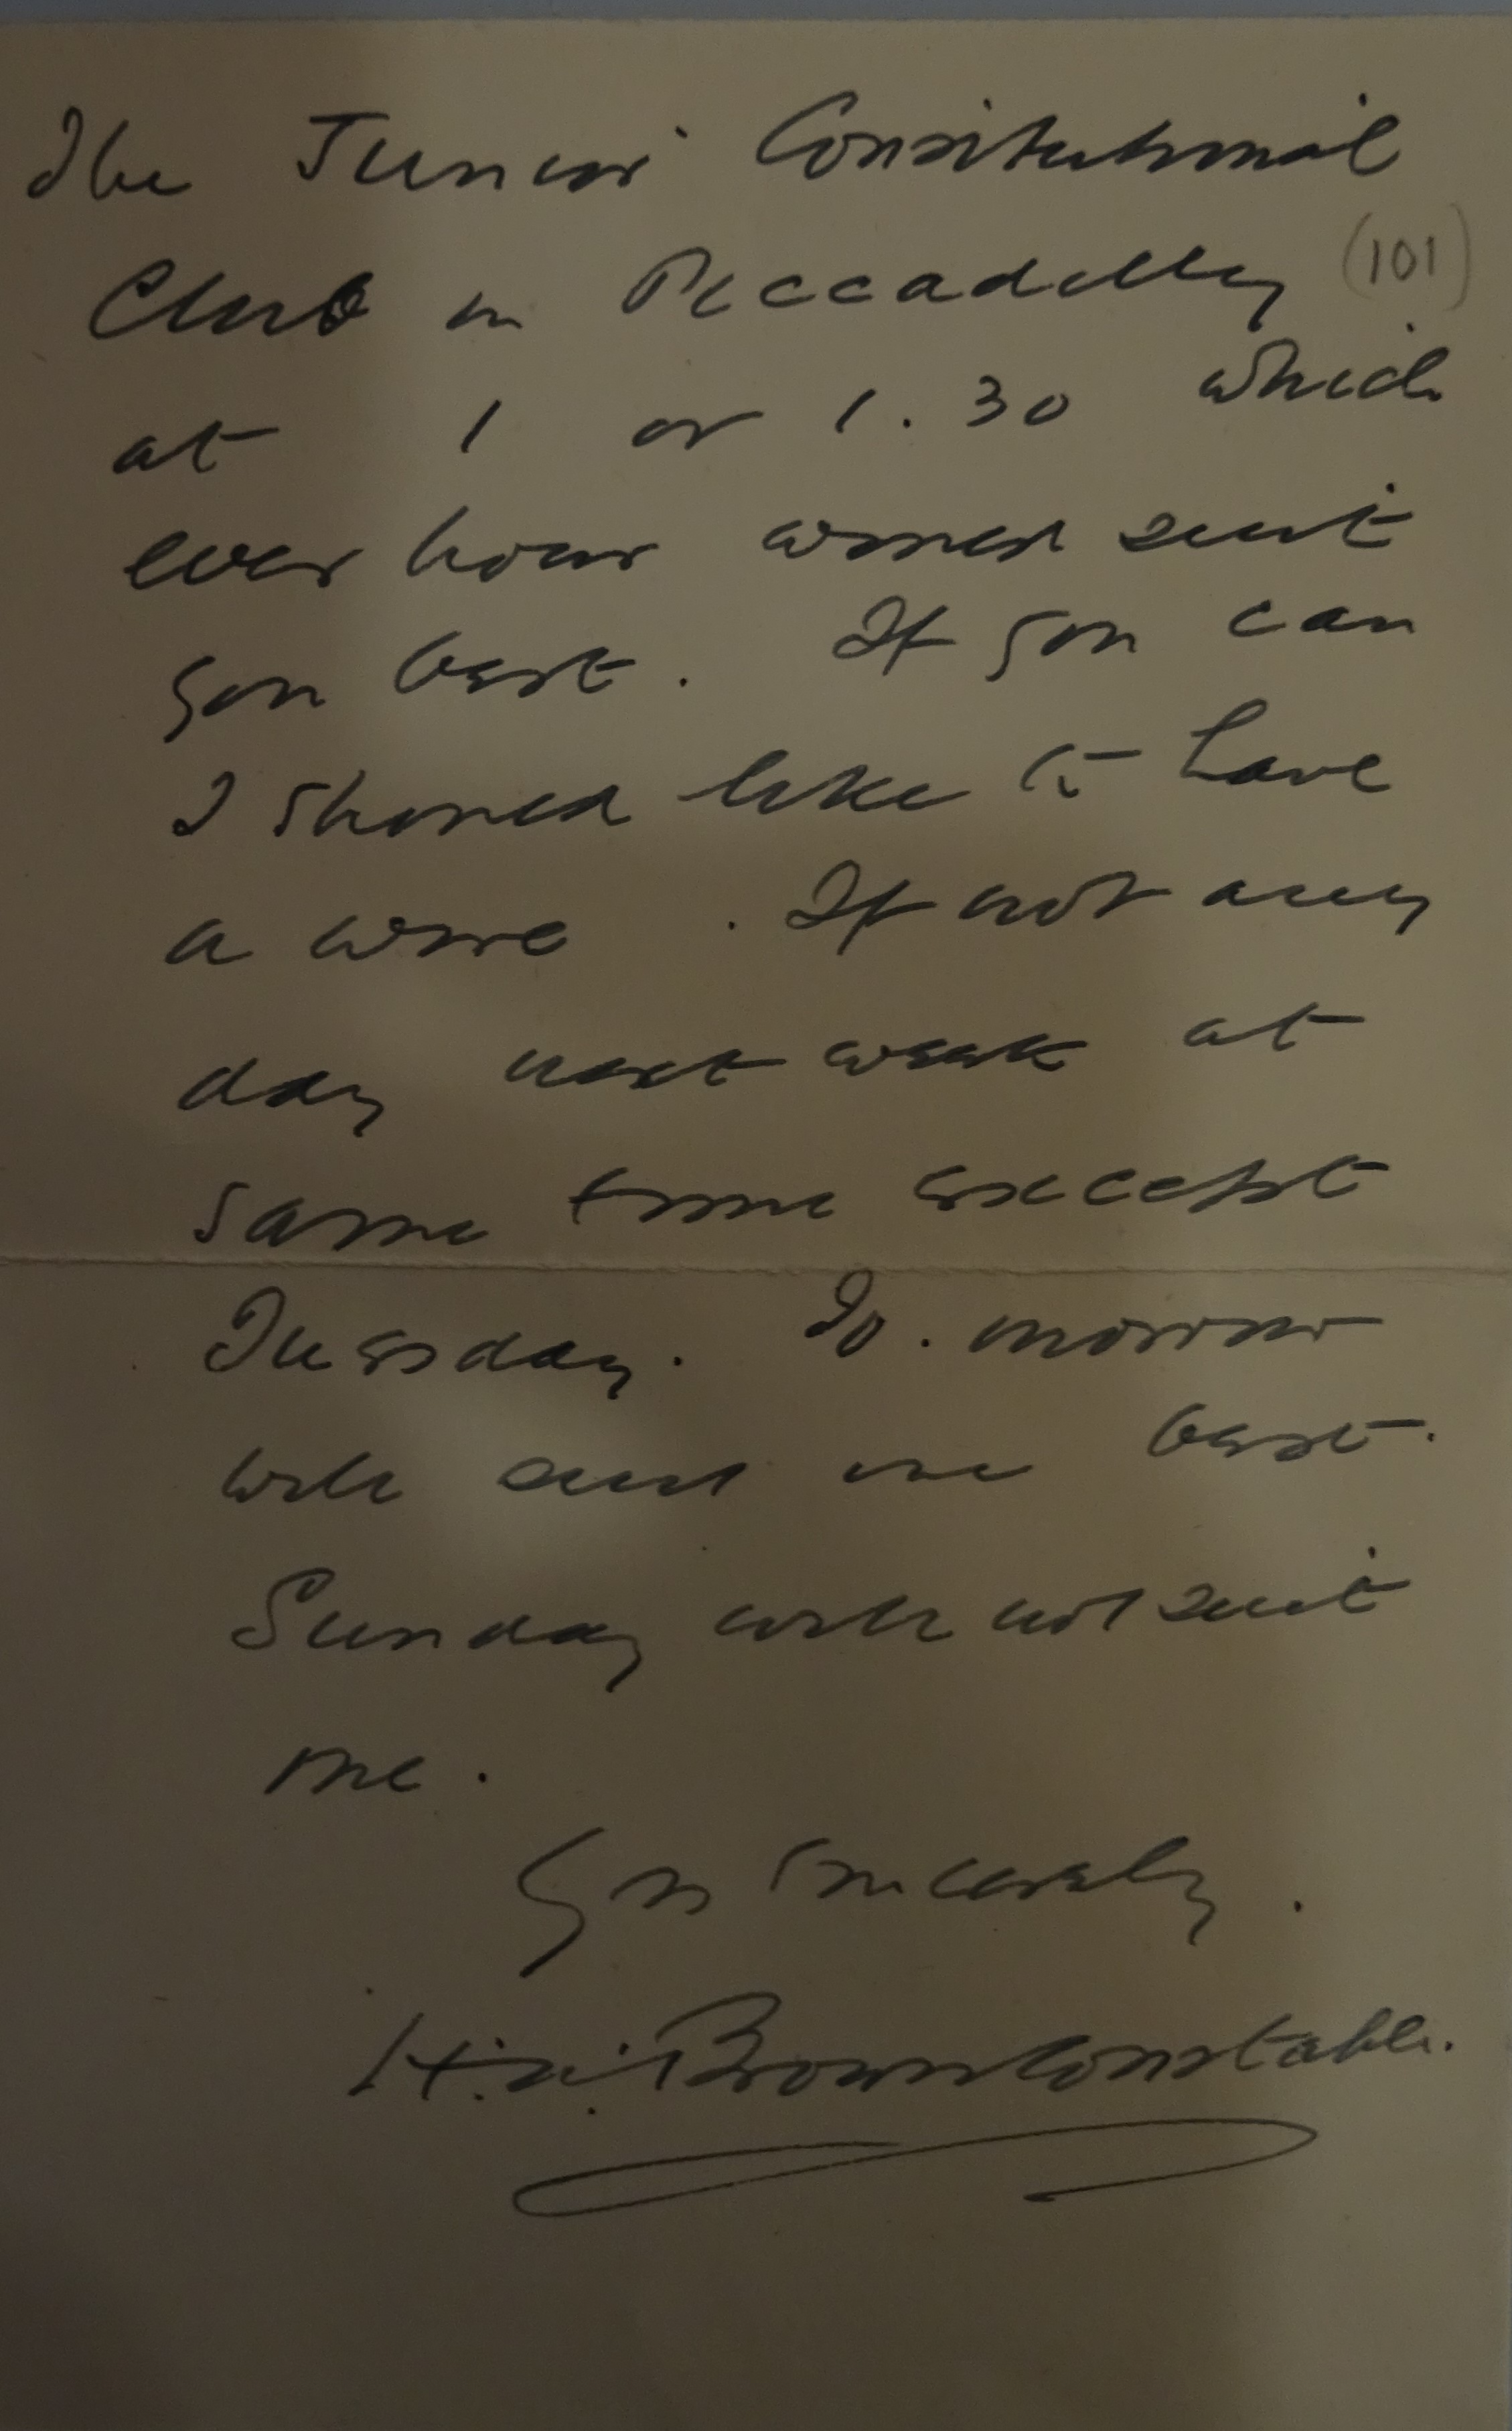 The Junior Constitutional
Club in Piccadilly (101)
at 1 or 1.30 which
ever hour would suit
you best. If you can
I should like to have
a wire. If not any
day next week at
same time except
Tuesday. To.morrow
will suit me best.
Sunday will not suit
me.
Yrs sincerely.
Brown Constable.